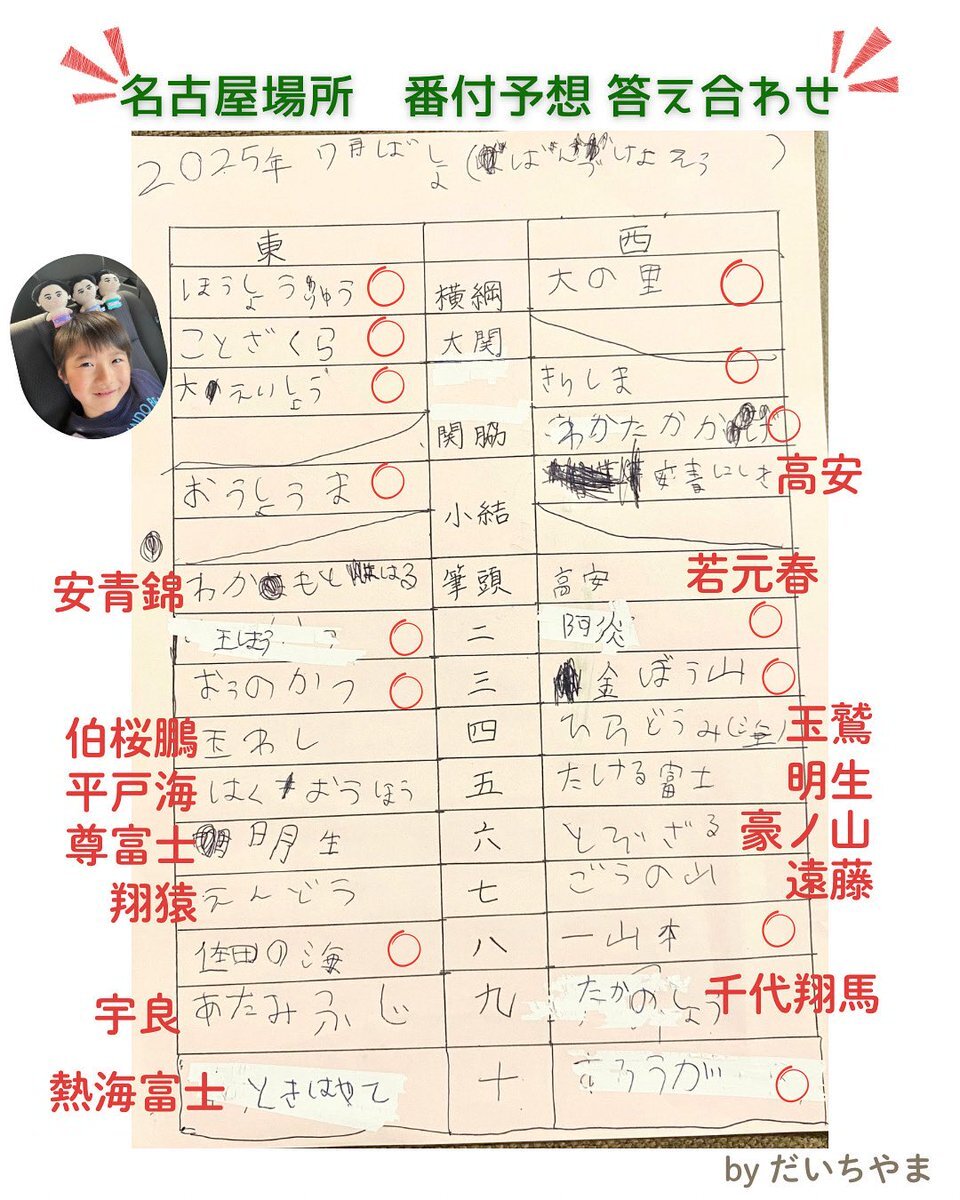 名古屋場所 番付予想 答え合わせ
2025年 7月ばしょ(ばんづけよそう)
東 西
ほうしょうりゅう 横綱 大の里
ことざくら 大関
大えいしょう きりしま
関脇 わかたかかげ
おうしょうま 小結 安青にしき 高安
安青錦 わかもとはる 筆頭 高安 若元春
王ほう 二 阿炎
おうのかつ 三 金ぼう山
伯桜鵬 玉わし 四 ひらどうみ(海) 玉鷲
平戸海 はくおうほう 五 たける富士 明生
尊富士 明生 六 とびざる 豪ノ山
翔猿 えんどう 七 ごうの山 遠藤
佐田の海 八 一山本
宇良 あたみふじ 九 たかのしょう 千代翔馬
熱海富士 ときはやて 十 ろうが
by だいちやま